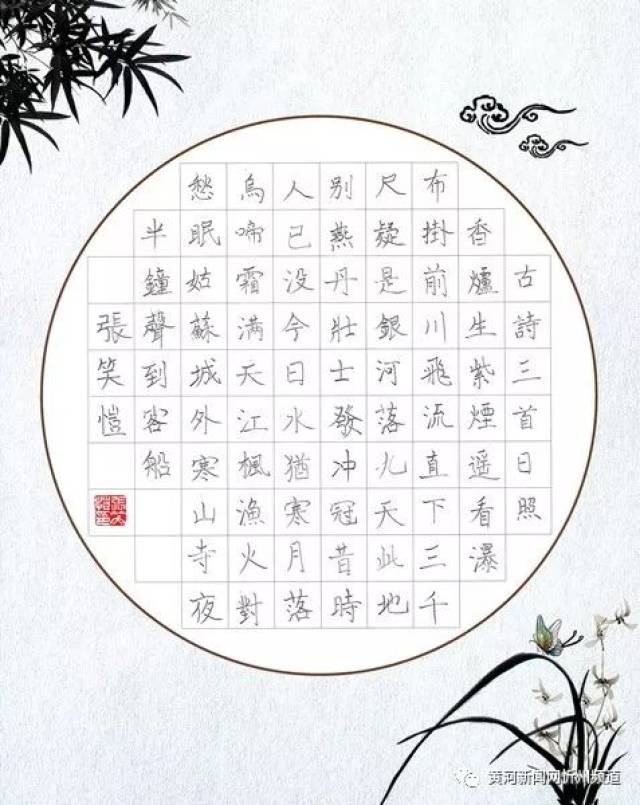 古詩三首日照
香爐生紫煙遥看瀑
布掛前川飛流直下三千
尺疑是銀河落九天此地
别燕丹壯士發冲冠昔時
人已没今日水猶寒月落
烏啼霜满天江楓漁火對
愁眠姑蘇城外寒山寺夜
半鐘聲到客船
張笑愷
黄河新闻网忻州频道